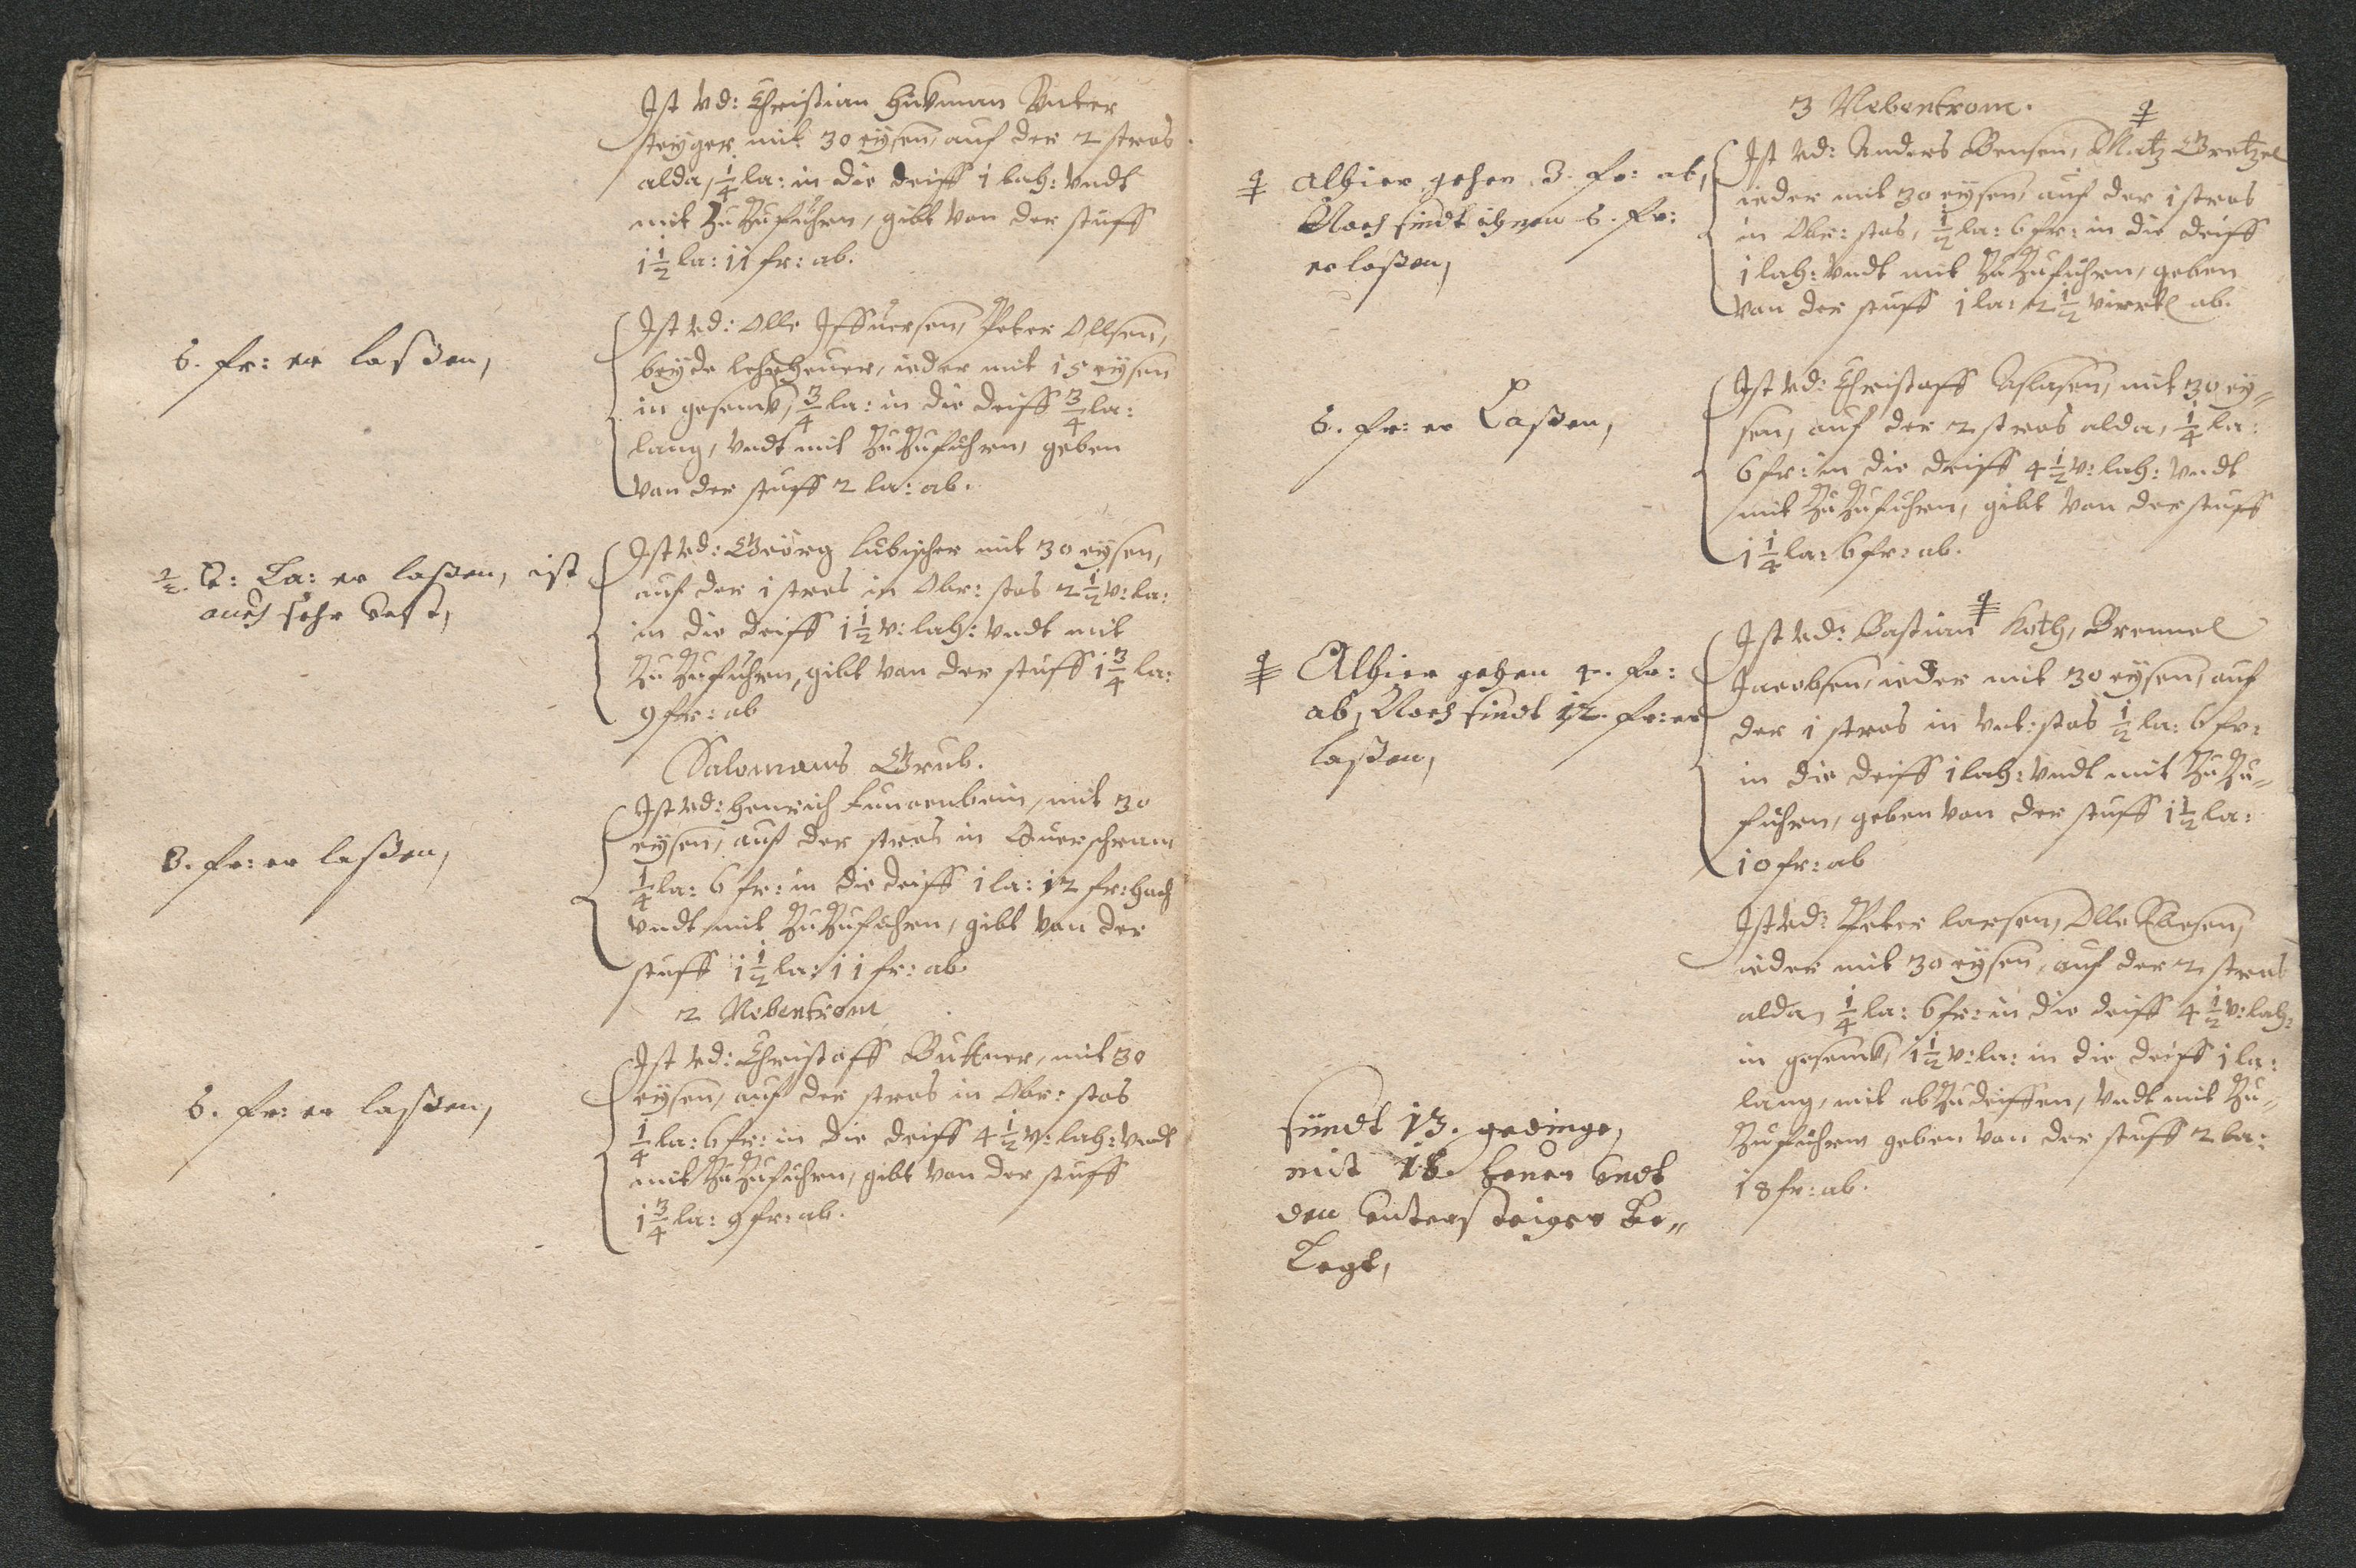 Ist vd: Christian Hüttman Unter
steyger mit 30 eysen, auf der 2 stros
alda, 1/4 la: in die deiff 1 lah: Vndt
mit Zu Zuführen, gibt von der stuff
1 1/2 la: 11 fr: ab.
6. fr: er laßen,
Ist vd: Olle Iffuersen, Peter Ollsen,
beyde lehrheuer, ieder mit 15 eysen
in gesenck, 3/4 la: in die deiff 3/4 la:
lang, Vndt mit Zu Zuführen, geben
Von der stuff 2 la: ab.
1/2 V: La: er laßen, ist
auch sehr Vest,
Ist vd: Georg Lubischer mit 30 eysen,
auf der 1 stros in Obr: stos 2 1/2 v: la:
in die deiff 1 1/2 v: lah: Vndt mit
Zu Zuführen, gibt von der stuff 1 3/4 la:
9 fr: ab
Salomons Grub.
8. fr: er laßen,
Ist vd: Henrich Lungenbein, mit 30
eysen, auf der stros in Querschram
1/4 la: 6 fr: in die deiff 1 la: 12 fr: hoch
Vndt mit Zu Zuführen, gibt von der
stuff 1 1/2 la: 11 fr: ab.
2 Nebentrom
6. fr: er laßen,
Ist vd: Christoff Buttner, mit 30
eysen, auf der stros in Obr: stos
1/4 la: 6 fr: in die deiff 4 1/2 v: lah: Vndt
mit Zu Zuführen, gibt von der stuff
1 3/4 la: 9 fr: ab.
3 Nebentrom.
Alhier gehen 3. fr: ab,
Noch sindt ihnen 6. fr:
erlaßen,
Ist vd: Anders Bensen, Matz Gretzel
ieder mit 30 eysen, auf der 1 stros
in Obr: stos, 1/2 la: 6 fr: in die deiff
1 lah: Vndt mit Zu Zuführen, geben
Von der stuff 1 la: 2 1/2 virrtl ab.
6. fr: er Laßen,
Ist vd: Christoff Aslasen, mit 30 ey„
sen, auf der 2 stros alda, 1/4 la:
6 fr: in die deiff 4 1/2 v: lah: Vndt
mit Zu Zuführen, gibt Von der stuff
1 1/4 la: 6 fr: ab.
Alhier gehen 4. fr:
ab, Noch sindt 12. fr: er
laßen,
Ist vd: Bastian Koth, Bremmel
Jacobsen, ieder mit 30 eysen, auf
der 1 stros in Vnt: stos 1/2 la: 6 fr:
in die deiff 1 lah: Vndt mit Zu Zu„
führen, geben von der stuff 1 1/2 la:
10 fr: ab
Ist vd: Peter Larsen, Olle
ieder mit 30 eysen, auf der 2 stros
alda, 1/4 la: 6 fr: in die deiff 4 1/2 v: lah:
in gesenck, 1 1/2 v: la: in die deiff 1 la:
lang, mit ab Zu deiffen, Vndt mit Zu„
Zuführen geben von der stuff 2 la:
18 fr: ab.
sindt 13. gedinge,
mit 18. heuer Vndt
den Untersteiger Be„
Legt,